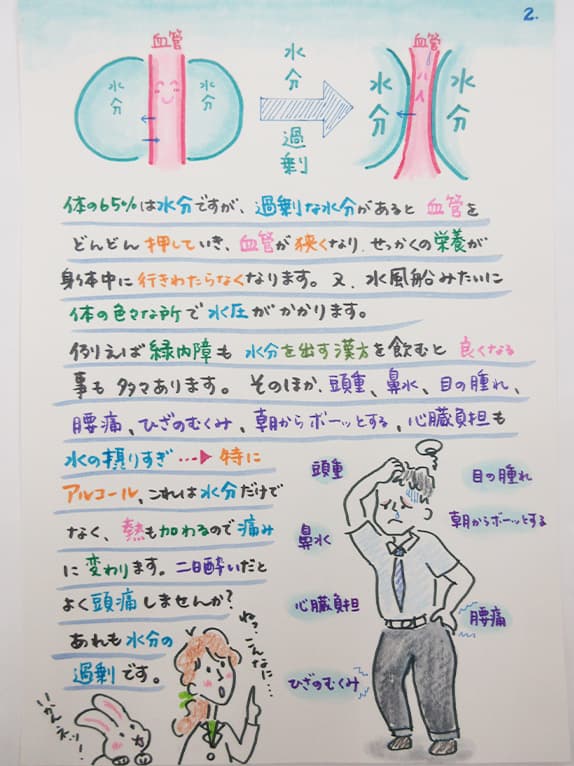 2.
血管
水分
水分
水分過剰
血管
水分
水分
体の65%は水分ですが、過剰な水分があると血管を
どんどん押していき、血管が狭くなり、せっかくの栄養が
身体中に行きわたらなくなります。又、水風船みたいに
体の色々な所で水圧がかかります。
例えば緑内障も水分を出す漢方を飲むと良くなる
事も多々あります。そのほか、頭重、鼻水、目の腫れ、
腰痛、ひざのむくみ、朝からボーッとする、心臓負担も
水の摂りすぎ…▶特に
アルコール、これは水分だけで
なく、熱も加わるので痛み
に変わります。二日酔いだと
よく頭痛しませんか?
あれも水分の
過剰です。
頭重
目の腫れ
朝からボーッとする
鼻水
心臓負担
腰痛
ひざのむくみ
ねっ…こんなに…
いかんネッ!